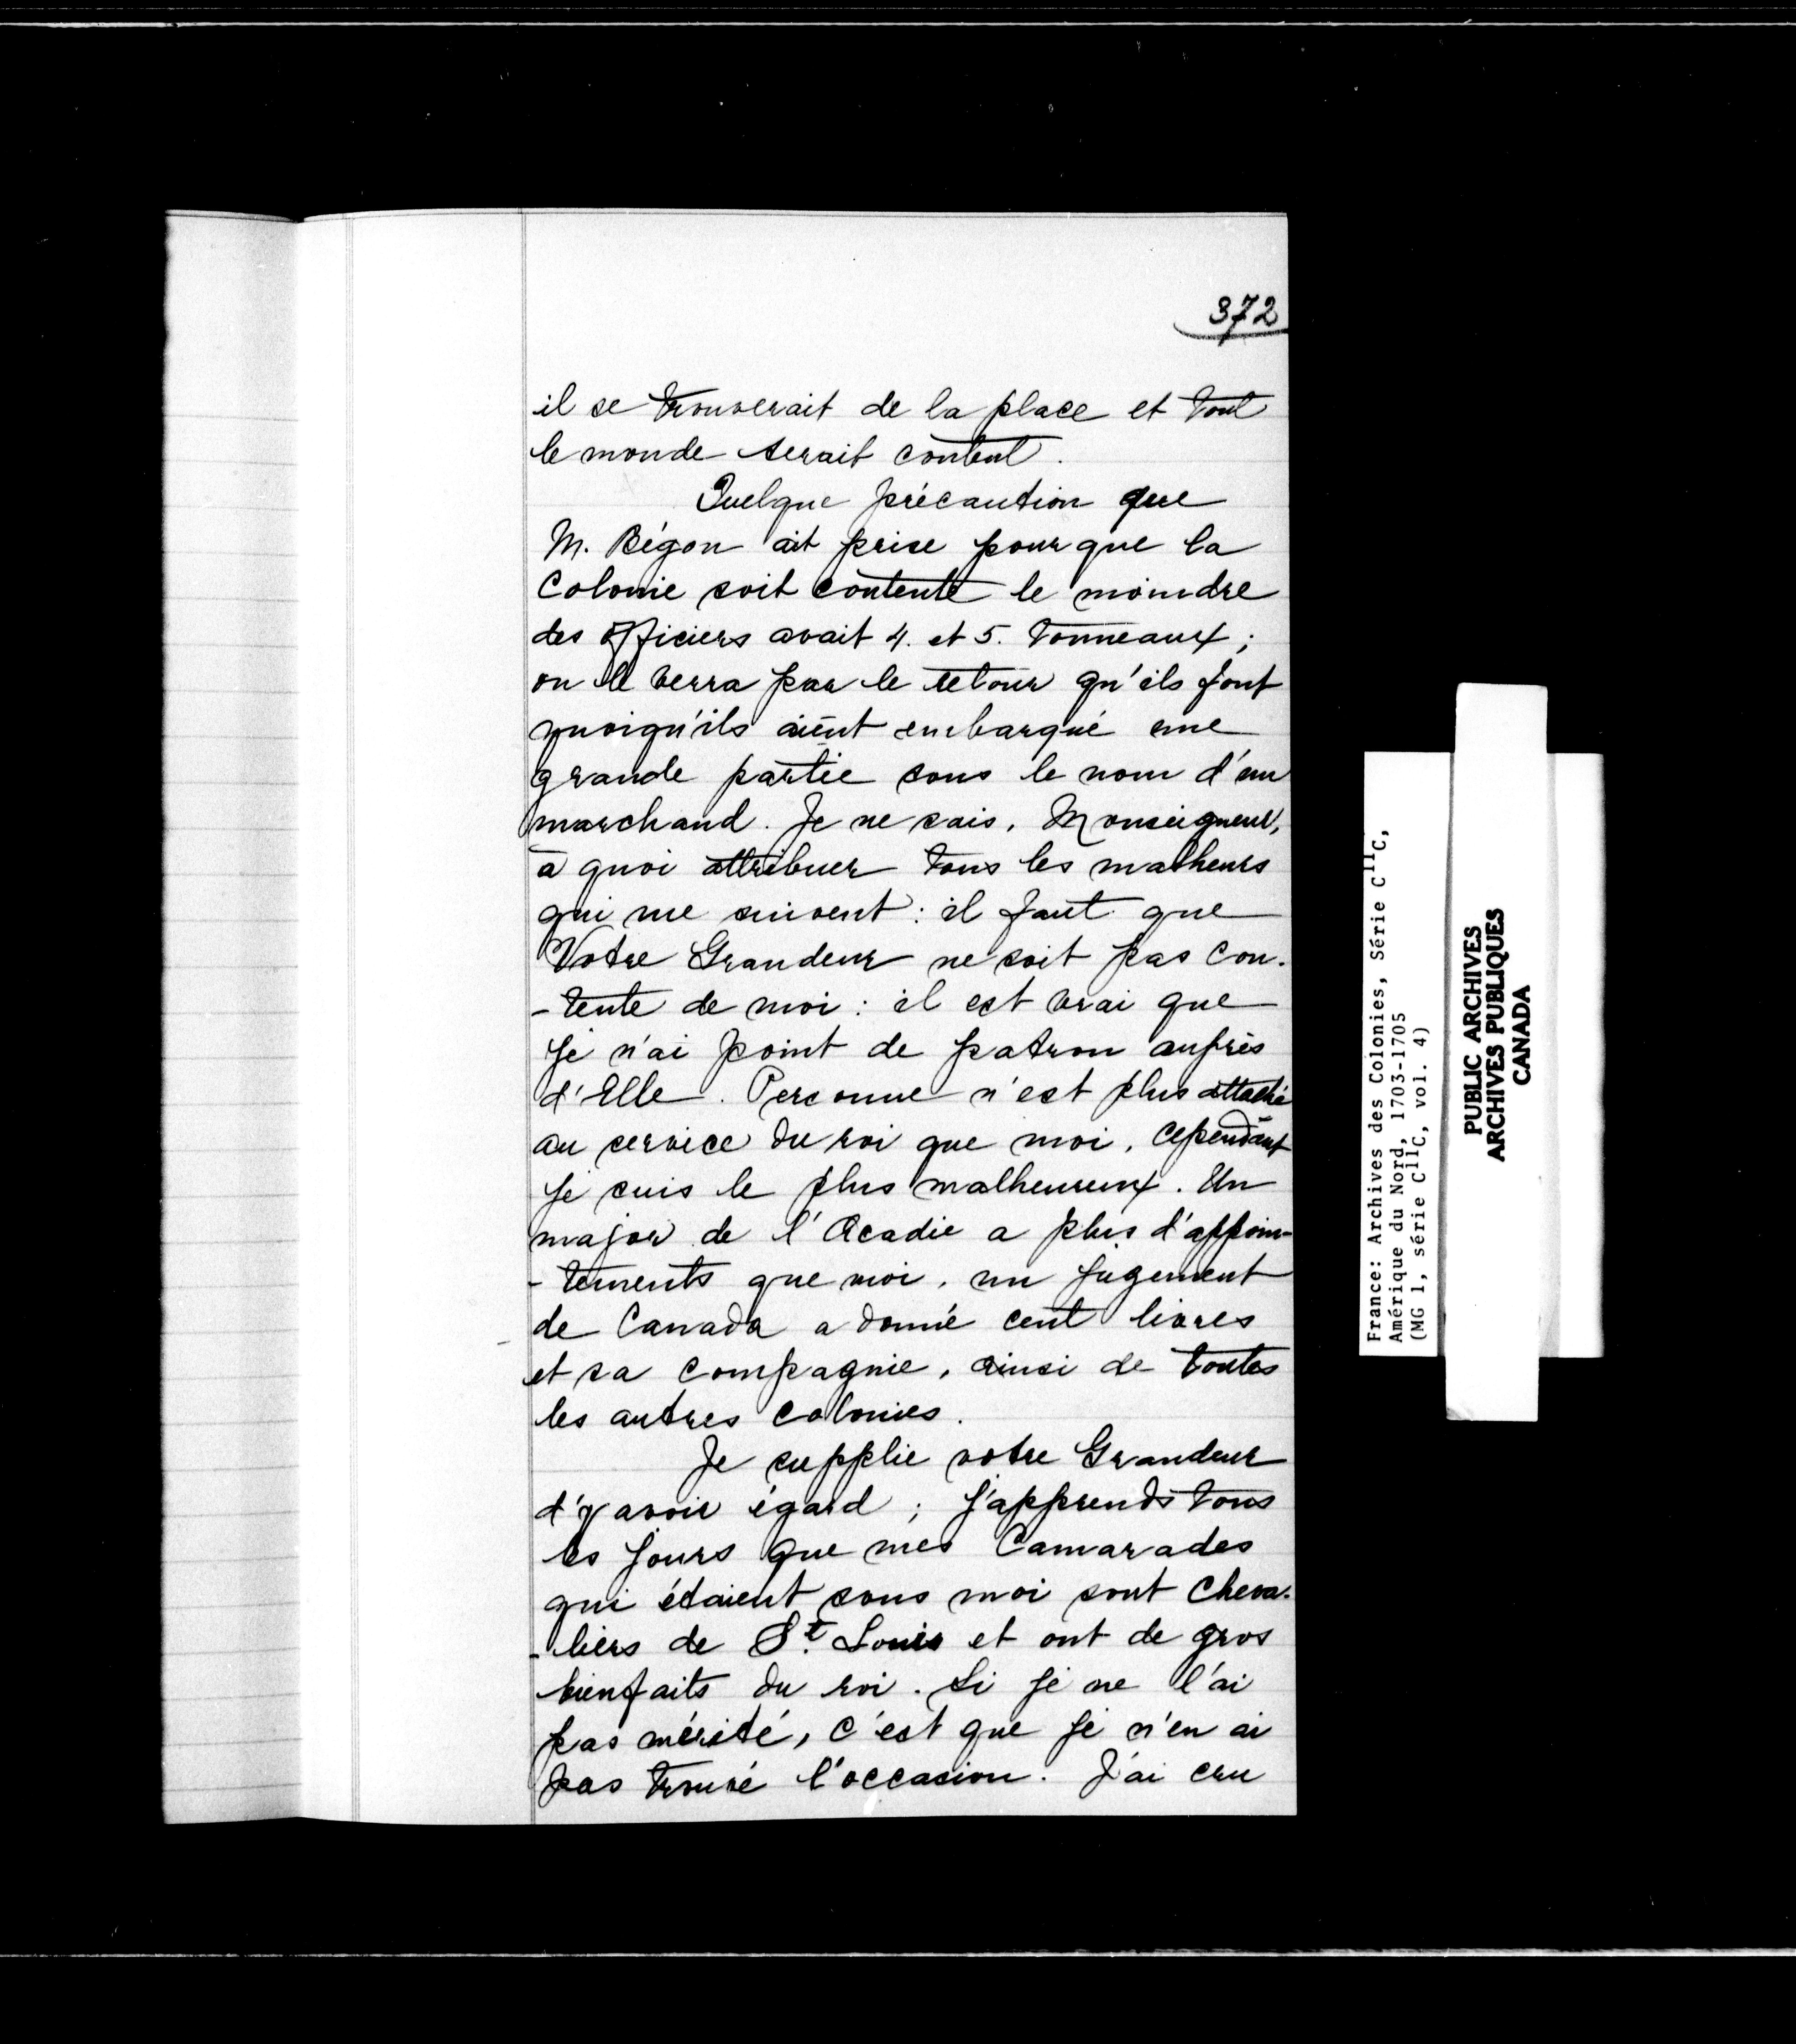 372
il se trouverait de la place et tout
le monde serait content.
Quelque précaution que
M. Bégon ait prise pour que la
Colonie soit contente le moindre
des officiers avait 4. et 5. tonneaux ;
on le verra par le retour qu'ils font
quoiqu'ils aient embarqué une
grande partie sous le nom d'un
marchand. Je ne sais, Monseigneur,
à quoi attribuer tous les malheurs
qui me suivent : il faut que
Votre Grandeur ne soit pas con-
-tente de moi : il est vrai que
je n'ai point de patron auprès
d'Elle. Personne n'est plus attaché
au service du roi que moi, cependant
je suis le plus malheureux. Un
major de l'Acadie a plus d'appoin-
-tements que moi, un jugement
de Canada a donné cent livres
et sa compagnie, ainsi de toutes
les autres colonies.
Je supplie votre Grandeur
d'y avoir égard ; j'apprends tous
les jours que mes Camarades
qui étaient sous moi sont cheva-
-liers de St. Louis et ont de gros
bienfaits du roi. Si je ne l'ai
pas mérité, c'est que je n'en ai
pas trouvé l'occasion. J'ai cru
France: Archives des Colonies, série C11C,
Amérique du Nord, 1703-1705
(MG 1, série C11C, vol. 4)
PUBLIC ARCHIVES
ARCHIVES PUBLIQUES
CANADA